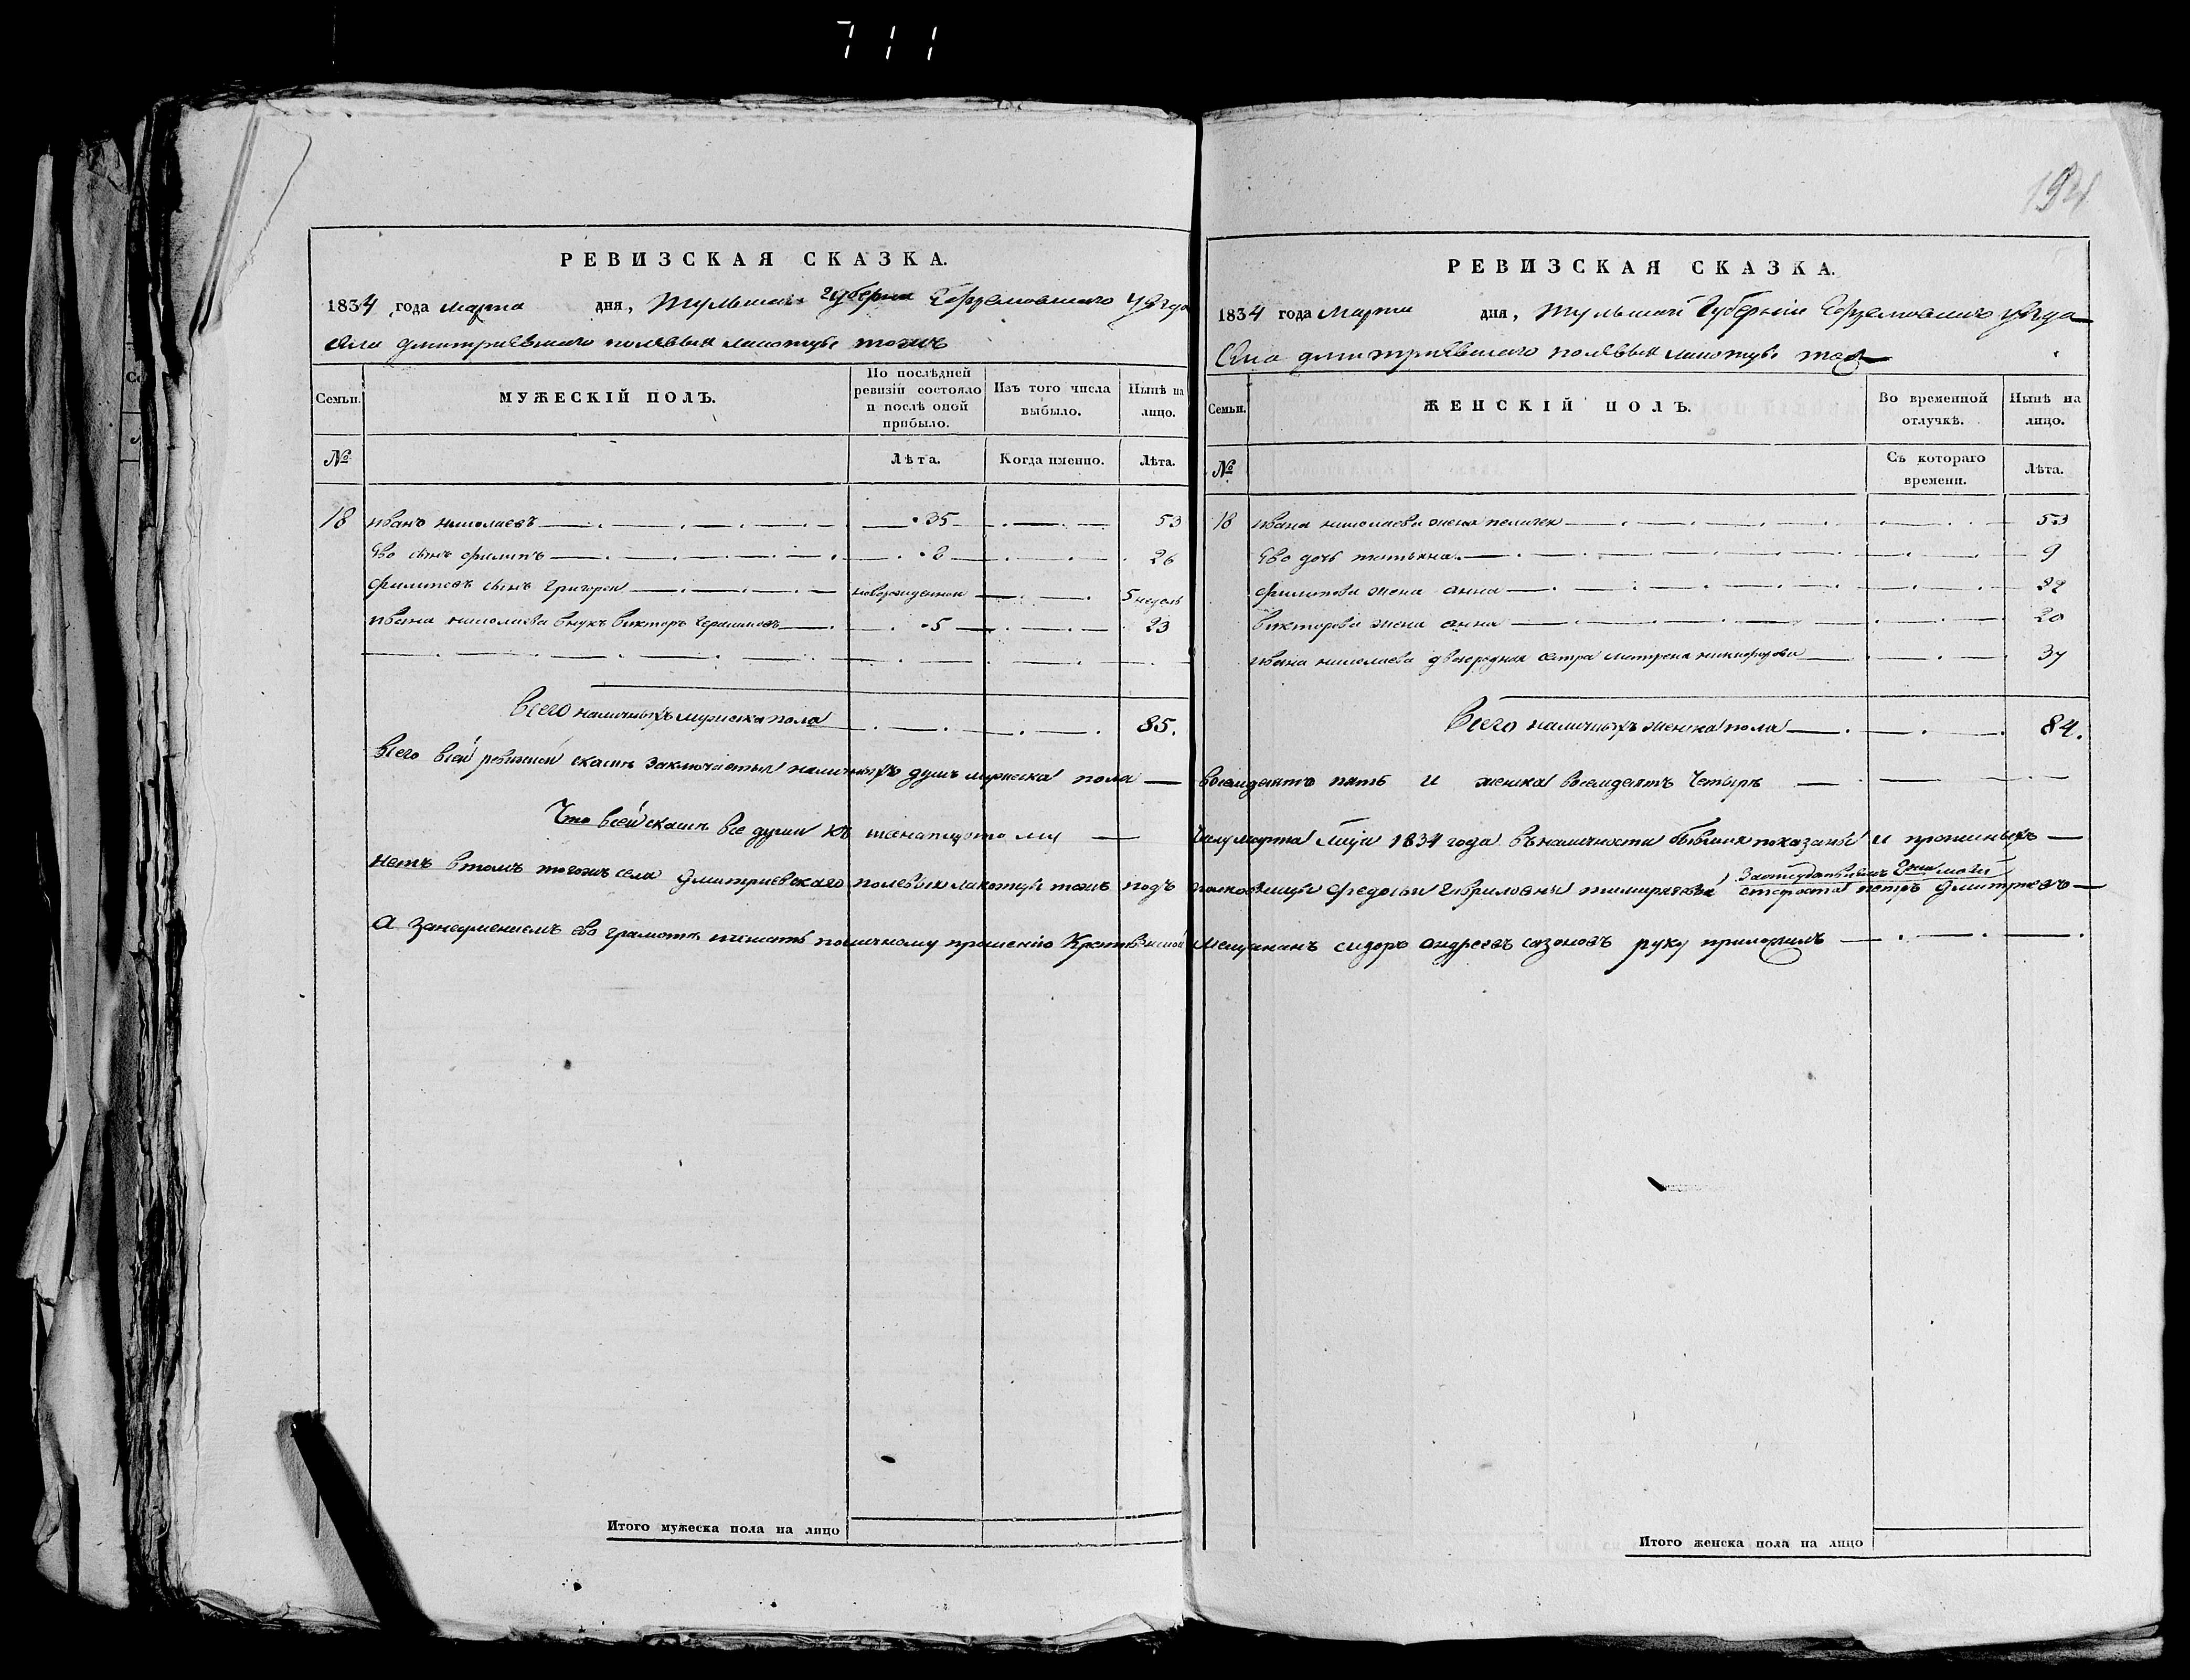 711
194
РЕВИЗСКАЯ СКАЗКА.
1834 года марта дня, Тульской губерни Ефремовского уезда
села дмитриевского полевыя локотцы тожъ
Семьи.
МУЖЕСКІЙ ПОЛЪ.
По послѣдней ревизіи состояло и послѣ оной прибыло.
Изъ того числа выбыло.
Нынѣ на лицо.
№
Лѣта.
Когда именно.
Лѣта.
18 иванъ николаевъ 35 53
ево сынъ филипъ 8 26
филиповъ сынъ григореи новорожденной 5 недель
ивана николаева внукъ викторъ герасимовъ 5 23
Всего наличныхъ мужеска пола 85.
РЕВИЗСКАЯ СКАЗКА.
1834 года марта дня, Тульской Губерніи Ефремовского уезда
села дмитриевского полевыя локотцы тож
Семьи.
ЖЕНСКІЙ ПОЛЪ.
Во временной отлучкѣ.
Нынѣ на лицо.
№
Съ котораго времени.
Лѣта.
18 ивана николаева жена пелагея 53
ево дочь татьяна 9
филипова жена анна 22
викторова жена анна 20
ивана николаева двоюродная сестра матрена никифорова 37
Всего наличныхъ женска пола 84.
Всего всей ревизской скаске заключается наличныхъ душъ мужеска пола восемдесятъ пять и женска восемдесятъ четыре
Что всей скаске все души къ числу марта 1834 года въ наличности бывшия показаны и прописныхъ
нетъ втомъ тогожъ села дмитриевскаго полевыя локотцы тожъ подполковницы федосьи гавриловны староста петръ дмитриевъ
А занеумениемъ ево грамоте поличному прошению мещанинъ сидоръ андреевъ сазоновъ руку приложилъ
Итого мужеска пола на лицо
Итого женска пола на лицо